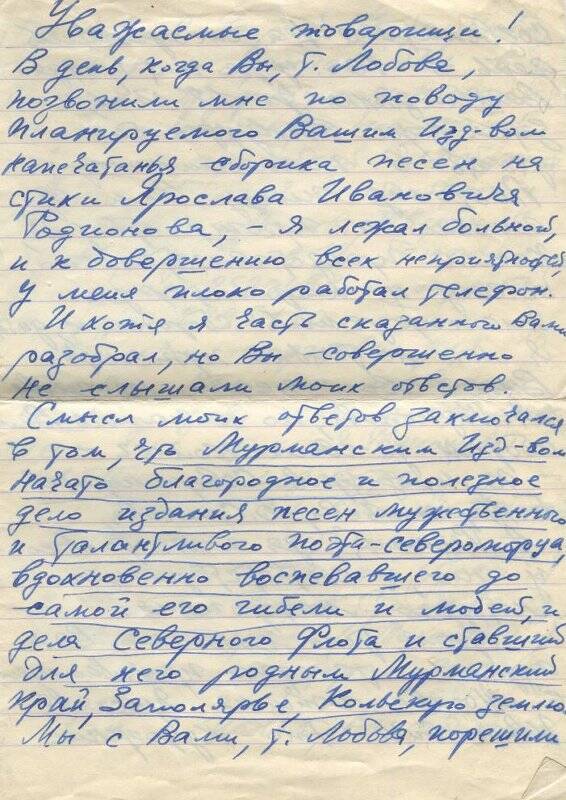 Уважаемые товарищи!
В день, когда Вы, т. Лобова,
позвонили мне по поводу
планируемого Вашим Изд-вом
напечатанья сборника песен на
стихи Ярослава Ивановича
Родионова, – я лежал больной,
и к довершению всех неприятностей,
у меня плохо работал телефон.
И хотя я часть сказанного Вами
разобрал, но Вы – совершенно
не слышали моих ответов.
Смысл моих ответов заключался
в том, что Мурманским Изд-вом
начато благородное и полезное
дело издания песен мужественного
и талантливого поэта-североморца,
вдохновенно воспевавшего до
самой его гибели и людей, и
дела Северного Флота и ставший
для него родным Мурманский
край, Заполярье, Кольскую землю.
Мы с Вами, т. Лобова, порешили